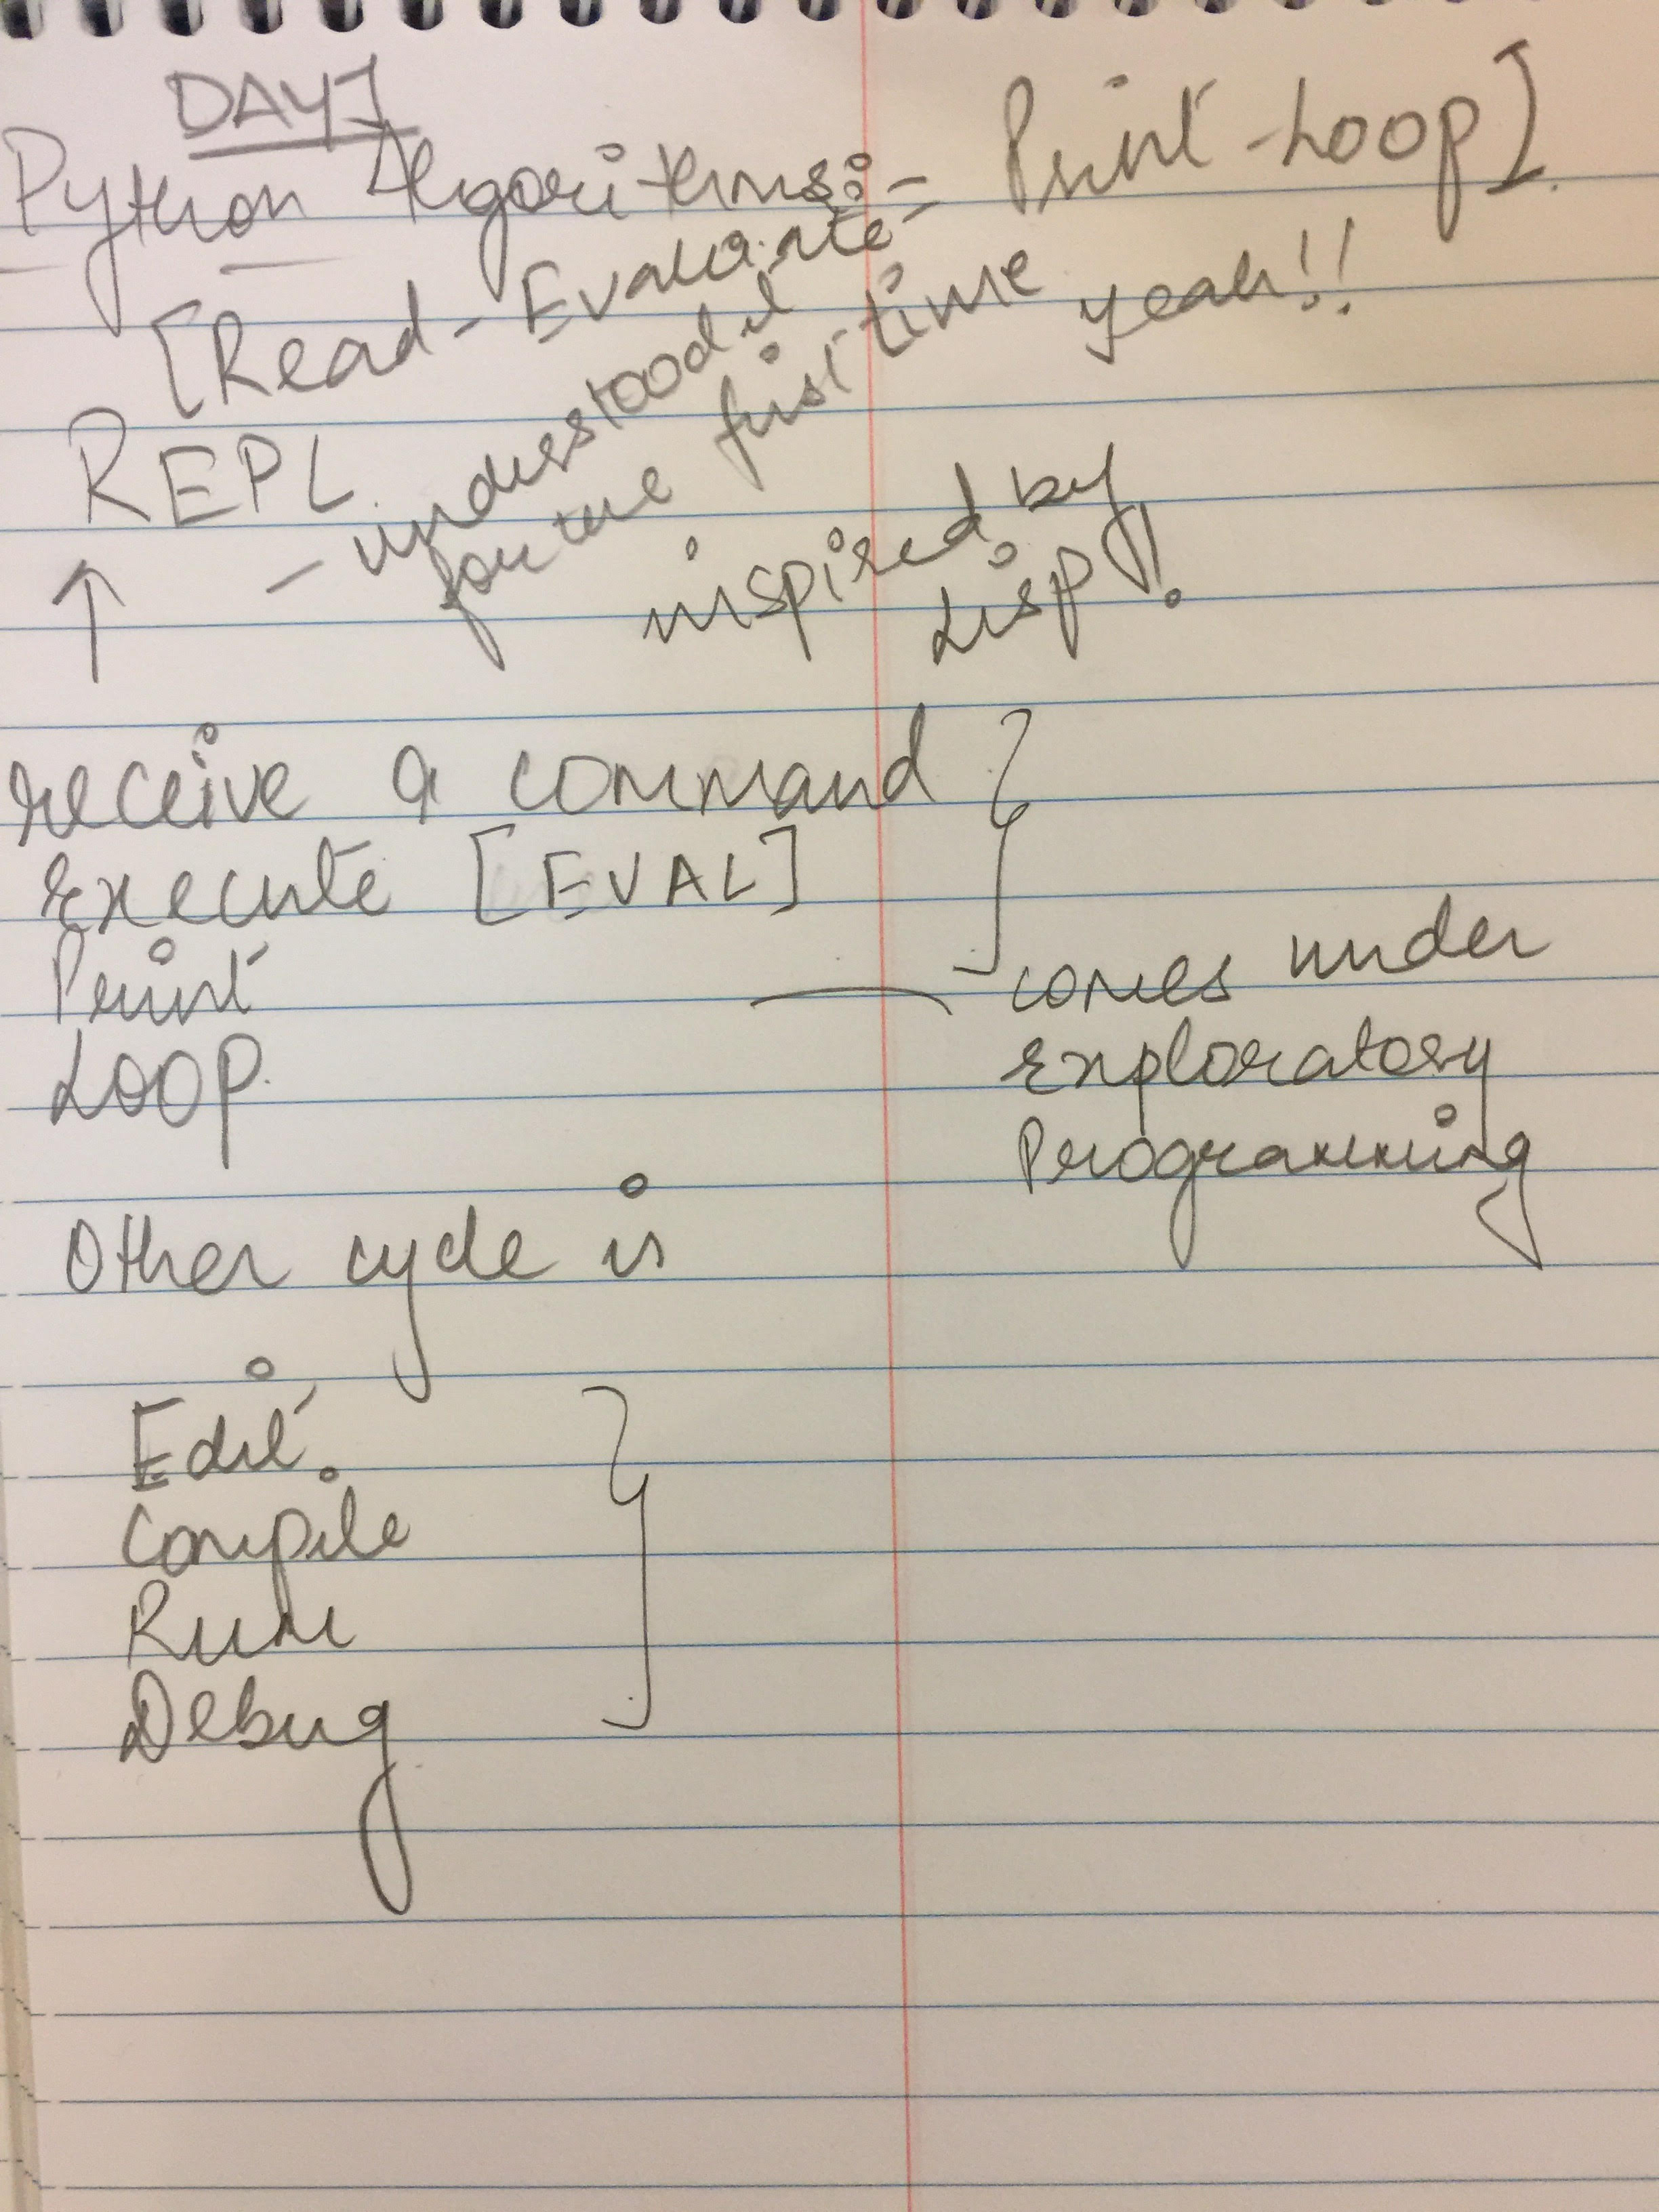 DAY 1
Python Algorithms:-
[Read-Evaluate-Print-Loop].
REPL.
- understood it
for the first time yeah!!
inspired by
Lisp!
↑
receive a command
Execute [EVAL]
Print
Loop.
comes under
Exploratory
Programming
Other cycle is
Edit.
Compile
Run
Debug